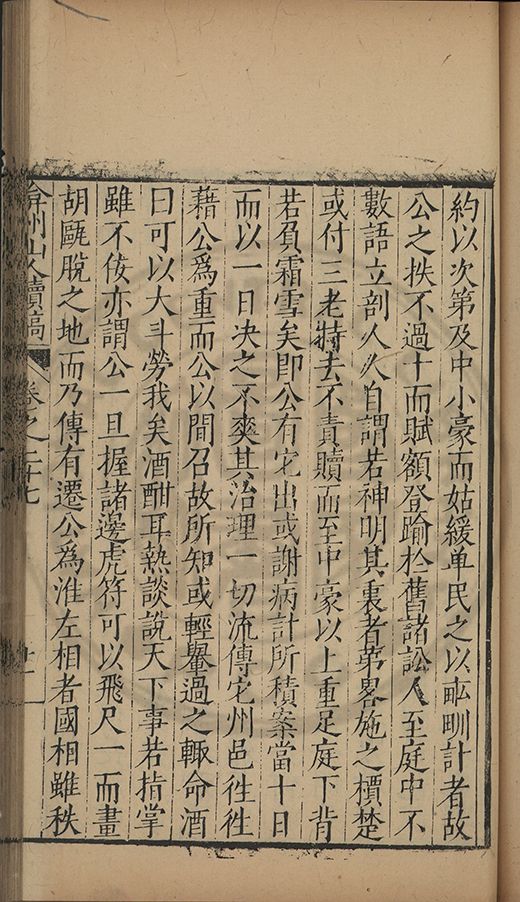 約以次第及中小豪而姑緩单民之以畝甽計者故
公之秩不過十而賦額登踰於舊諸訟人至庭中不
數語立剖人人自謂若神明其裏者苐畧施之檟楚
或付三老特去不責贖而至中豪以上重足庭下背
若負霜雪矣即公有它出或謝病計所積案當十日
而以一日决之不爽其治理一切流傳它州邑徃徃
藉公爲重而公以間召故所知或輕轝過之輙命酒
曰可以大斗勞我矣酒酣耳熱談說天下事若指掌
雖不佞亦謂公一旦握諸邊虎符可以飛尺一而畫
胡甌脫之地而乃傳有遷公爲淮左相者國相雖秩
弇州山人續稿
卷之二十七
十一